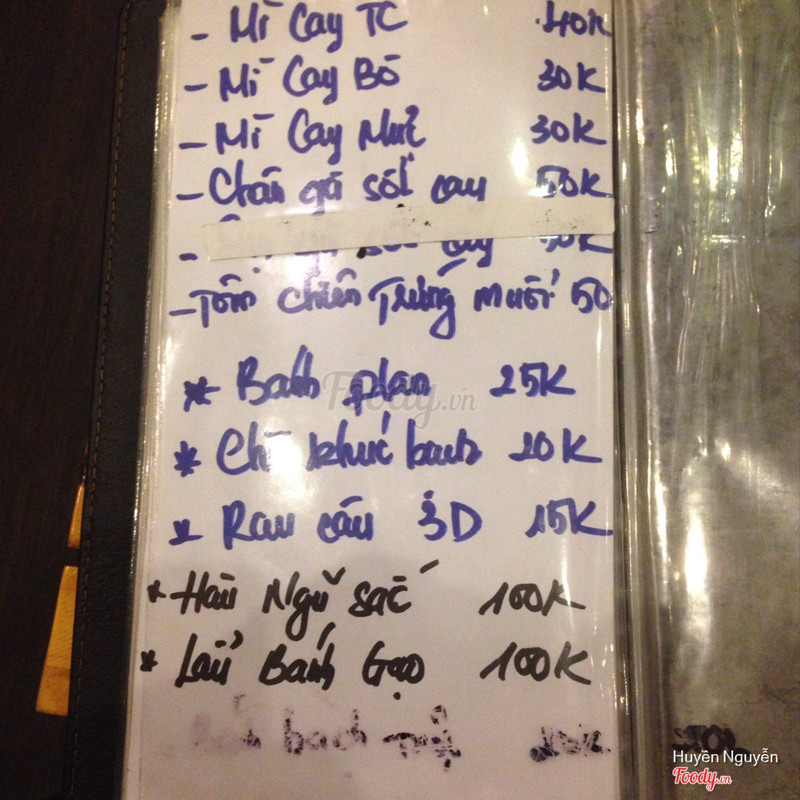 - Mì Cay TC 40K
- Mì Cay Bò 30K
- Mì Cay Mực 30K
- Chân gà sốt cay 50K
- cay 50K
- Tôm chiên Trứng muối 50
* Bánh plan 25K
* Chè khúc bạch 20K
* Rau câu 3D 15K
* Hàu Ngũ sắc 100K
* Lẩu Bánh Gạo 100K
Foody.vn
Huyền Nguyễn
Foody.vn